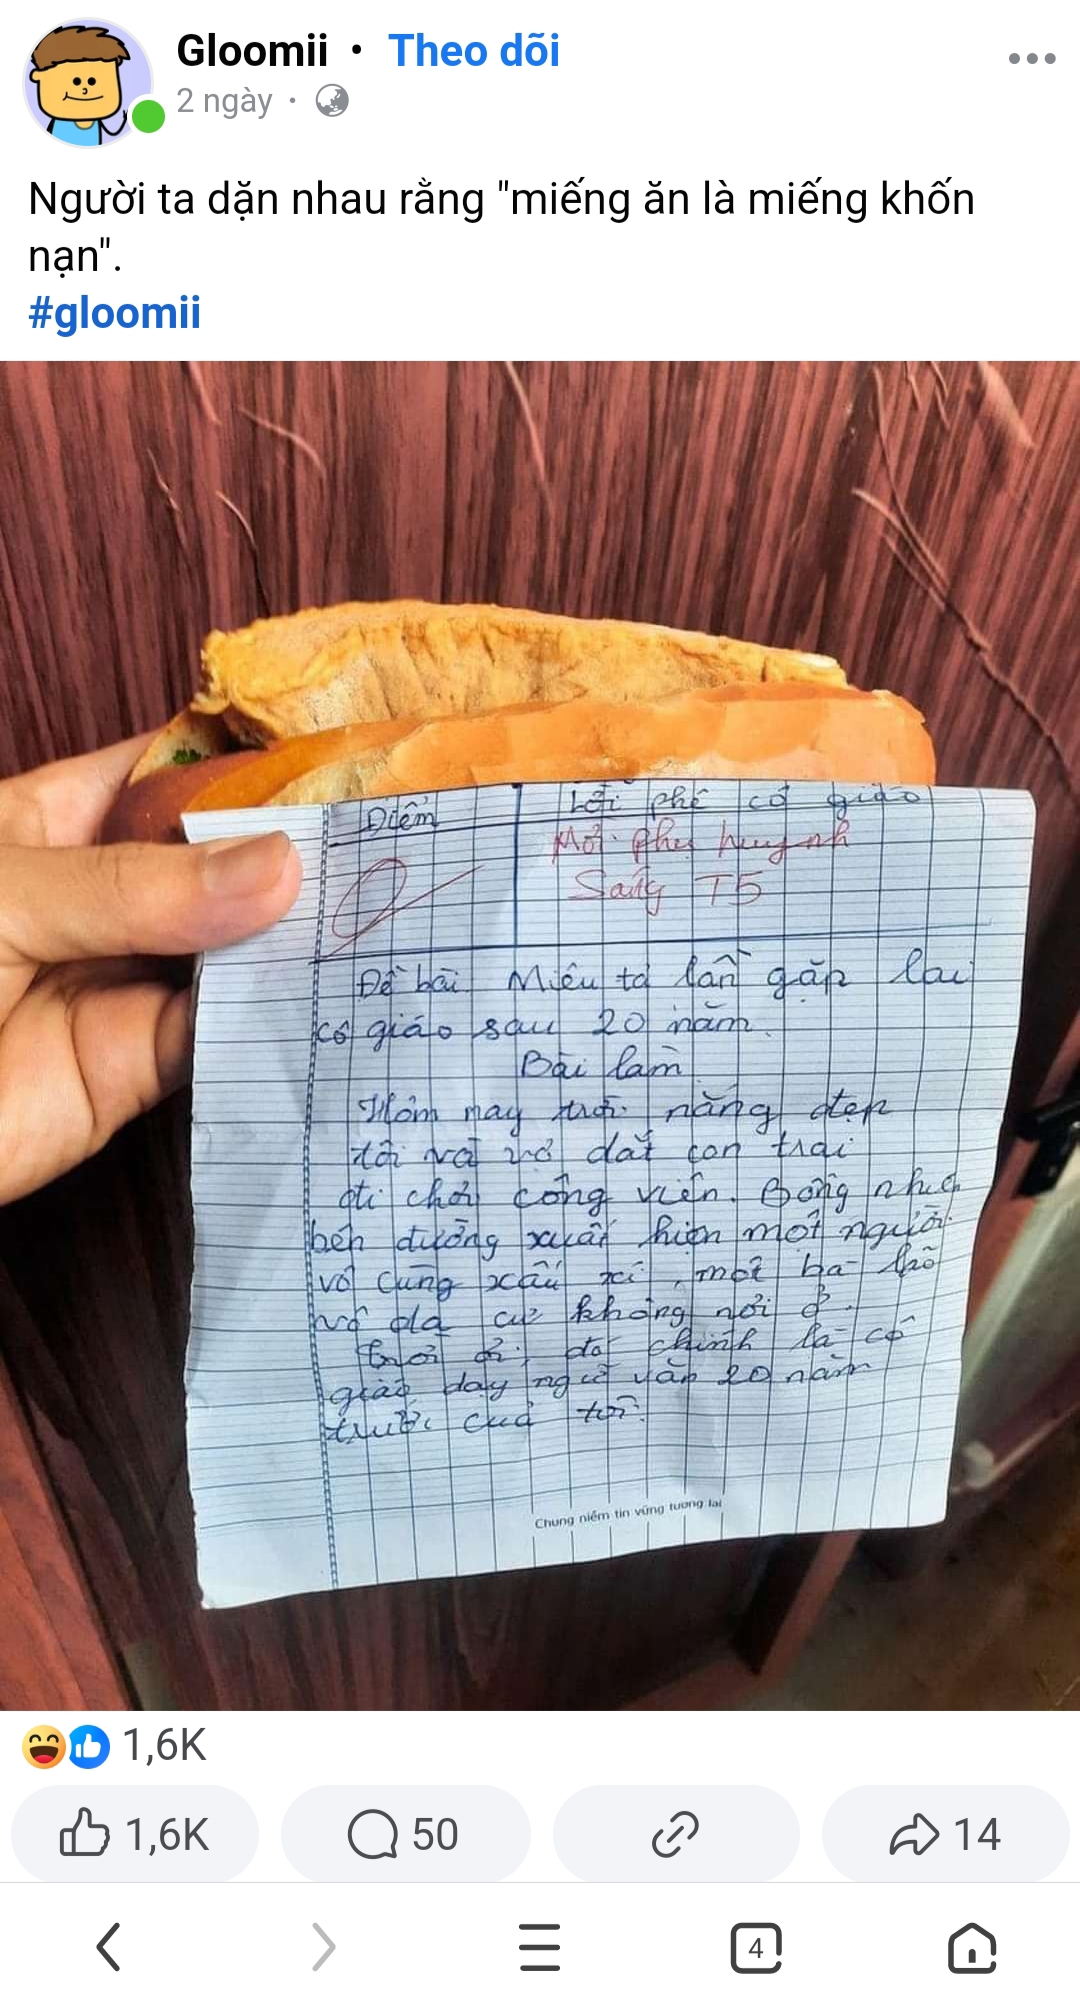 Gloomii • Theo dõi
2 ngày
Người ta dặn nhau rằng "miếng ăn là miếng khốn
nạn".
#gloomii
Điểm
Lời phê cô giáo
0
Mời phụ huynh
Sáng T5
Đề bài Miêu tả lần gặp lại
cô giáo sau 20 năm.
Bài làm
Hôm nay trời nắng đẹp
tôi và vợ dắt con trai
đi chơi công viên. Bỗng nhiê
bên đường xuất hiện một người
vô cùng xấu xí, một bà lão
vô gia cư không nơi ở.
Trời ơi, đó chính là cô
giáo dạy ngữ văn 20 năm
trước của tôi.
Chung niềm tin vững tương lai
1,6K
1,6K
50
14
4